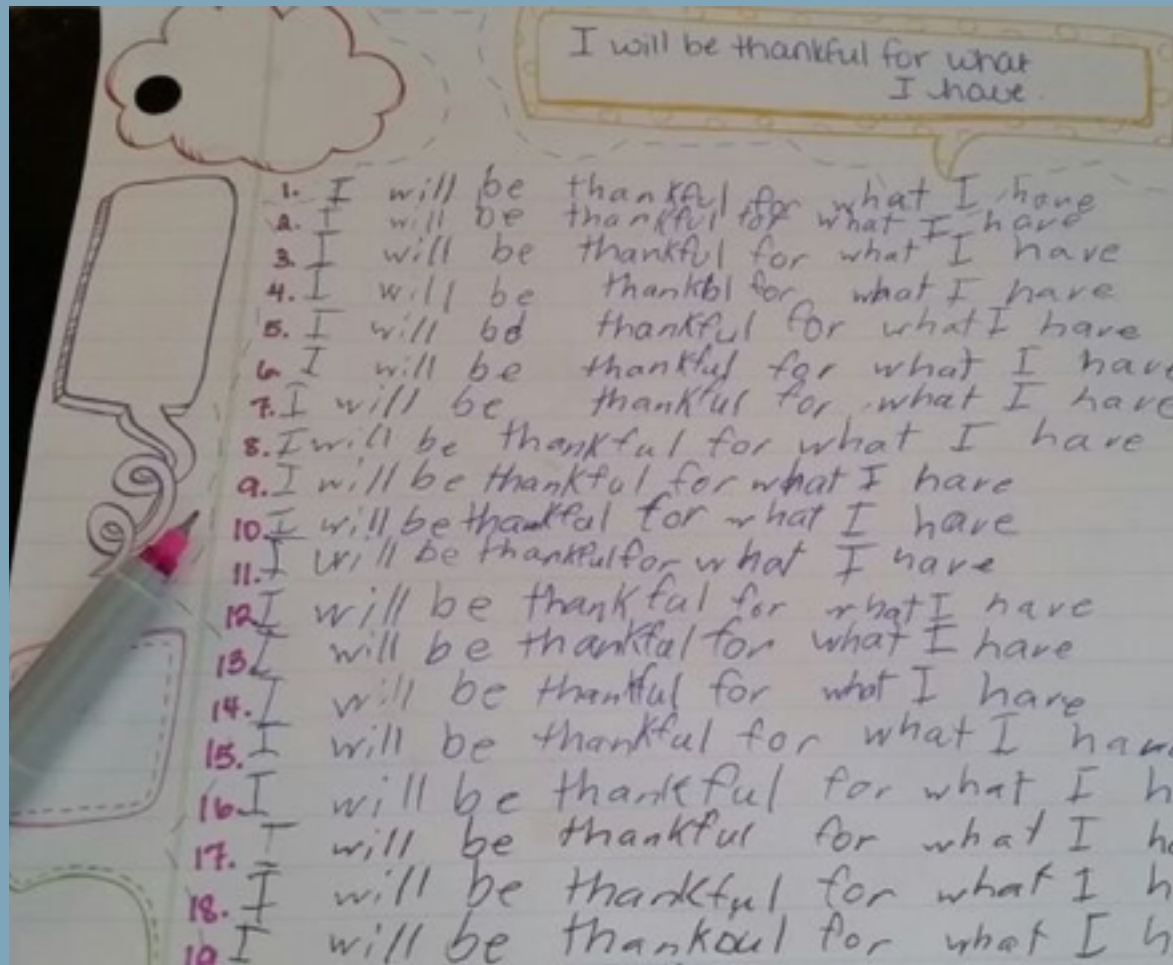 I will be thankful for what
I have.
1. I will be thankful for what I have
2. I will be thankful for what I have
3. I will be thankful for what I have
4. I will be thankbl for what I have
5. I will bd thankful for what I have
6. I will be thankful for what I have
7. I will be thankful for what I have
8. I will be thankful for what I have
9. I will be thankful for what I have
10. I will be thankful for what I have
11. I will be thankful for what I have
12. I will be thankful for what I have
13. I will be thankful for what I have
14. I will be thankful for what I have
15. I will be thankful for what I
16. I will be thankful for what I h
17. I will be thankful for what I ha
18. I will be thankful for what I h
19 I will be thankoul for what I h